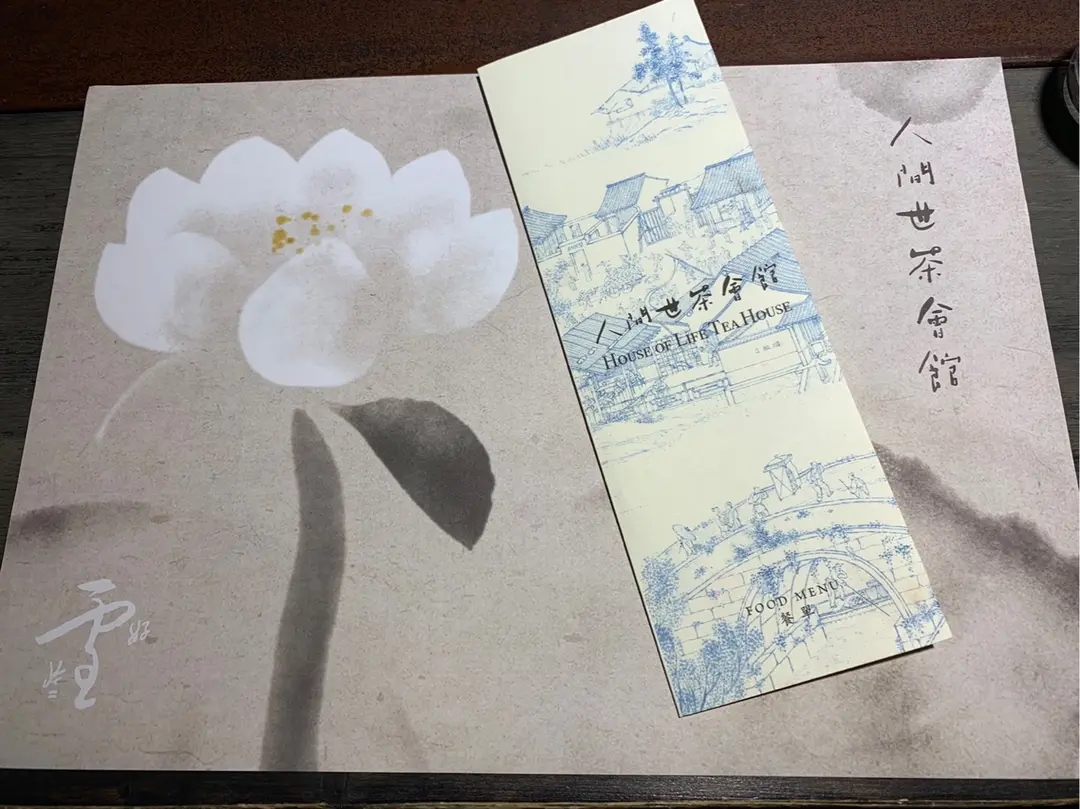 人間世茶會館
人間世茶會館
HOUSE OF LIFE TEA HOUSE
FOOD MENU
餐單